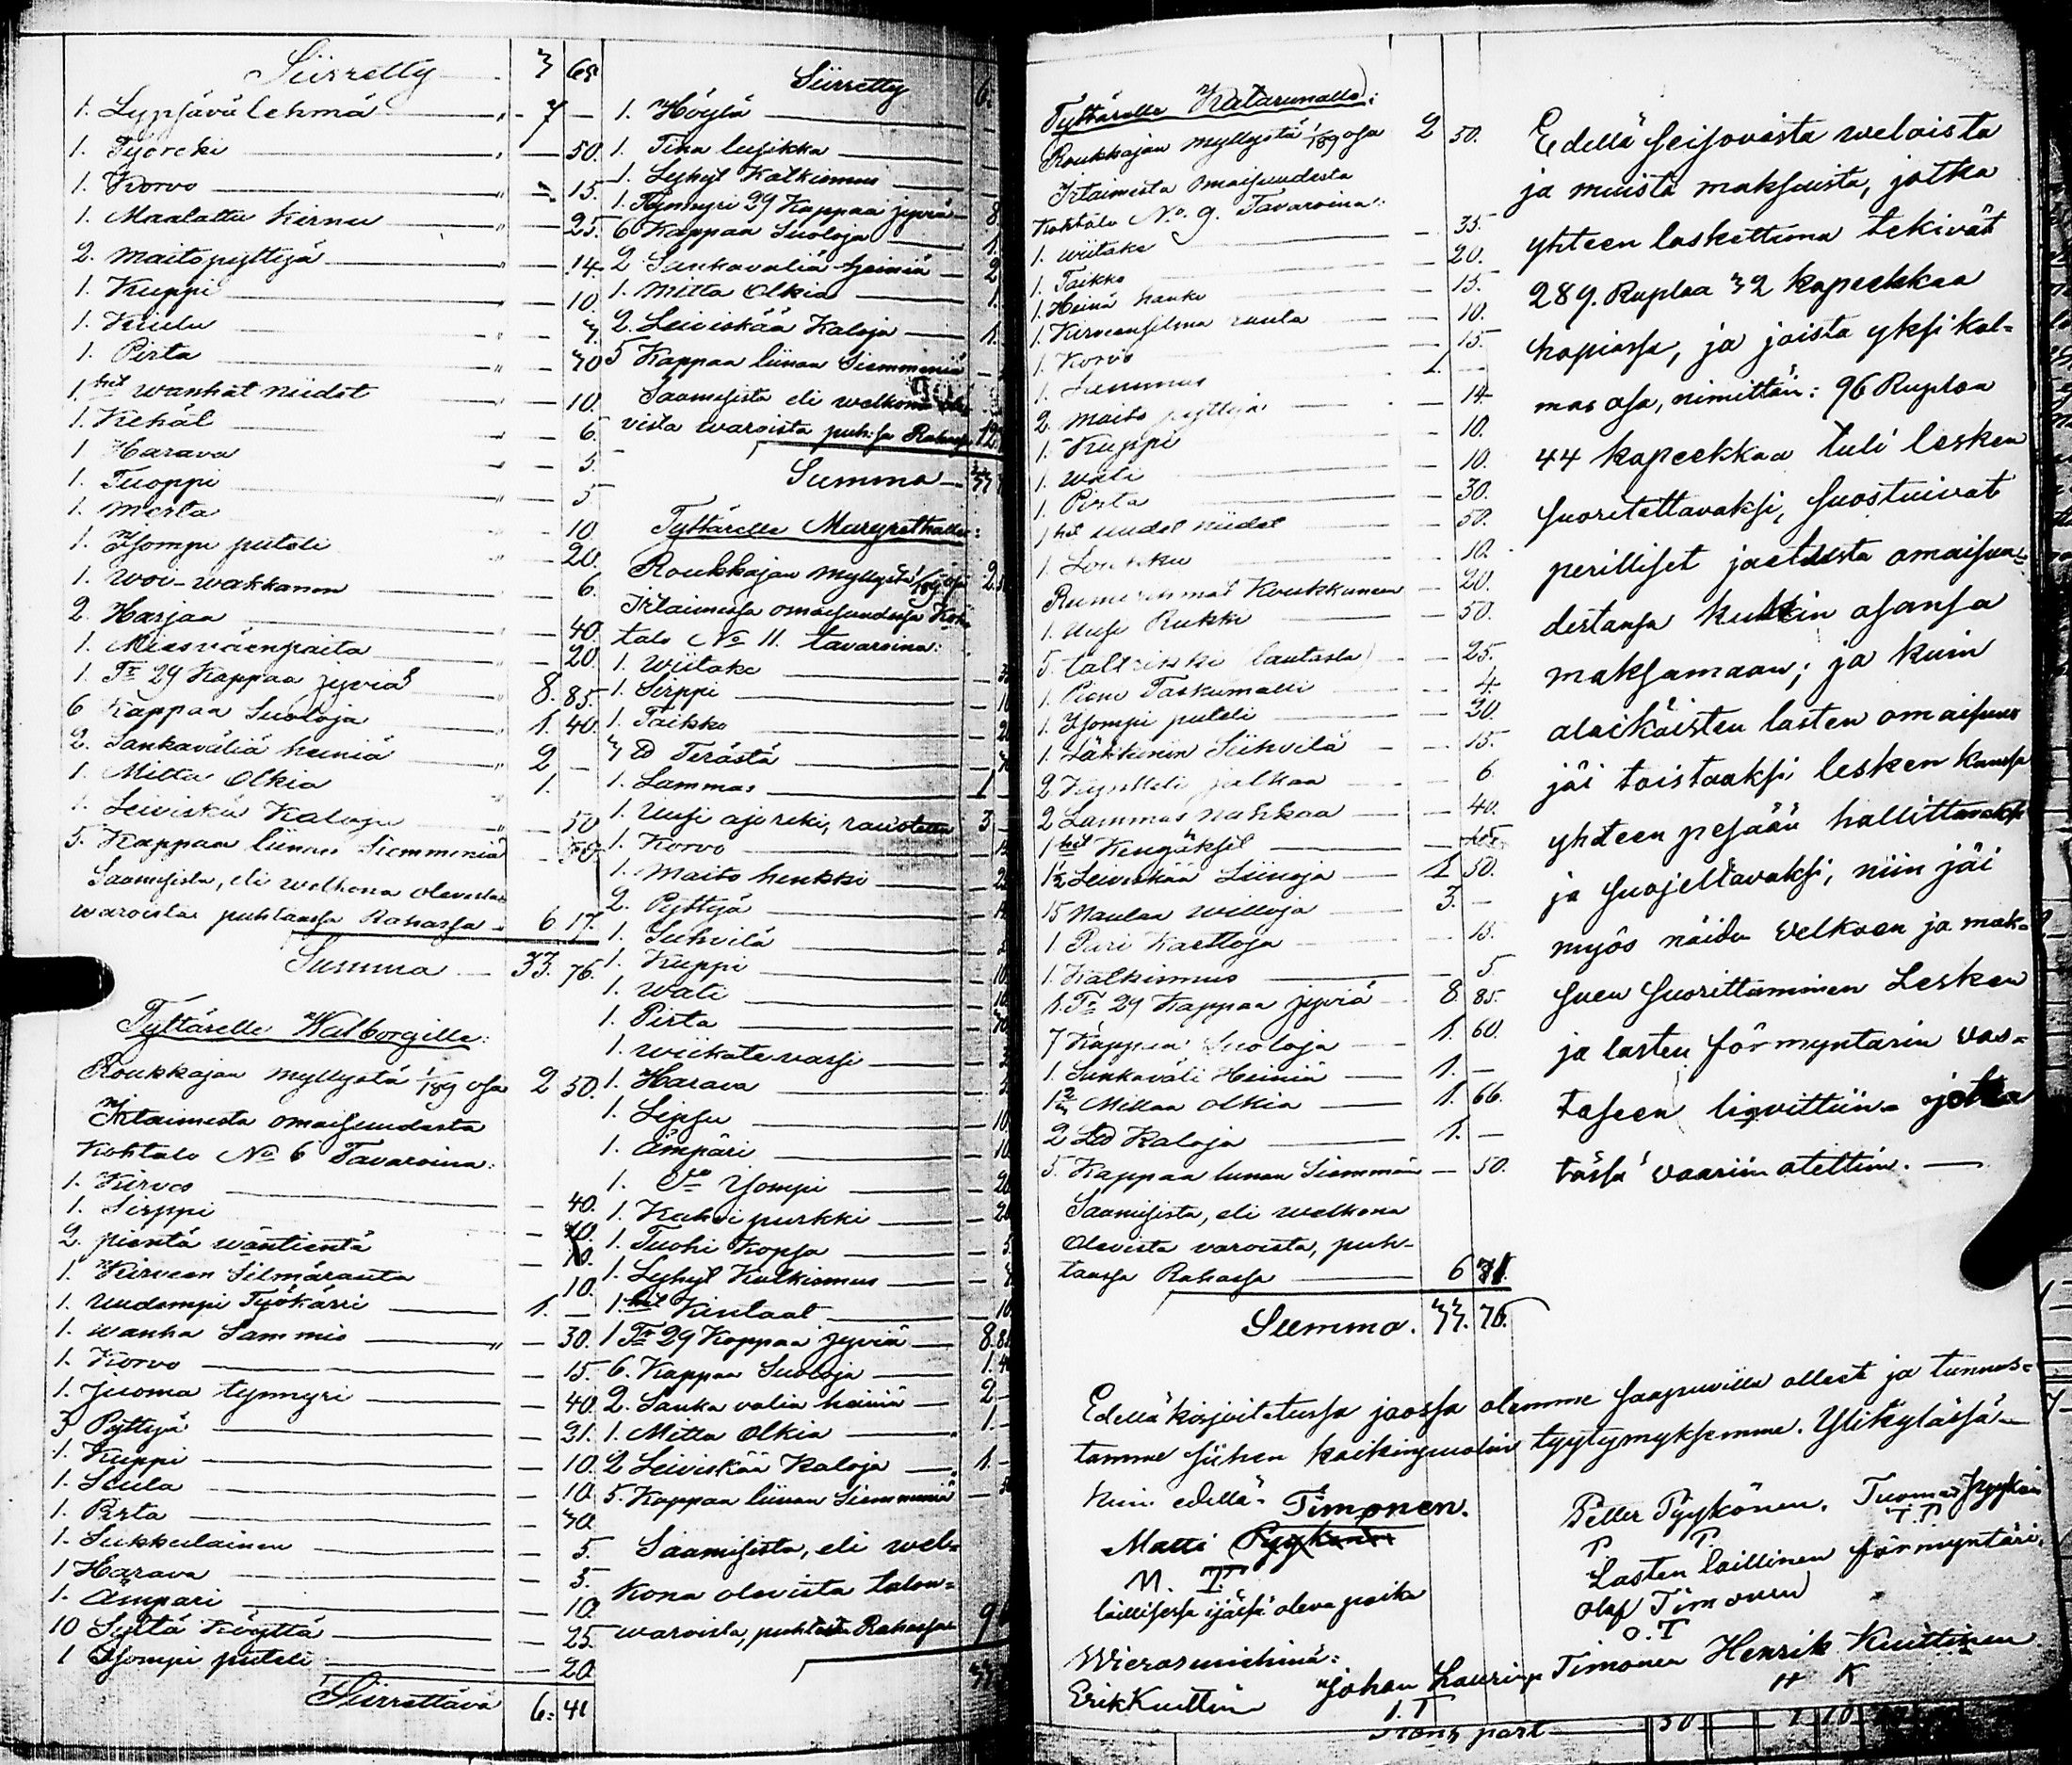 Siirretty 3 65.
1. Lypsävä lehmä " - 7 —
1. Työreki " — 50.
1. Korvo " — 15.
1. Maalattu Kirnu " — 25.
2. Maitopyttyä " — 14
1. Kuppi " — 10.
1. Kiulu " — 7.
1. Pirta " — 70
1. het wanhat niidet " — 10.
1. Kehät " — 6.
1 Harava " — 5.
1. Tuoppi " — 5
1. Merta — 10.
1. Isompi puteli " 20.
1. woi-wakkanen — 6.
2. Harjaa — 40.
1. Miesväenpaita — 20.
1. Tr 29 Kappaa jyviä " 8. 85.
6 Kappaa Suoloja " 1. 40.
2. Sankaväliä heiniä " 2 —
1. Mitta Olkia 1.
1. Leiviskä Kaloja " — 50
5. Kappaa liinan Siemmeniä — 50.
Saamisista, eli welkona olevista
waroista puhtaassa Rahassa - 6 17.
Summa — 33. 76.
Tyttärelle Walborgille:
Roukkajan Myllystä 1/189 osa 2 50.
Irtaimesta omaisuudesta
Kohtalo No 6 Tavaroina:
1. Kirves — 40.
1. Sirppi — 10.
2. pientä wäntientä — 10.
1. Kirveen Silmärauta 10.
1. Uudempi Työkärri 1. —
1. wanha Sammio " — 30.
1. Korvo — 15.
1. Juoma tynnyri — 40.
3 Pyttyä — 21.
1. Kuppi — 10.
1. Seula — 10
1. Pirta — 70
1. Sukkulainen — 5.
1 Harava — 5.
1. Ämpäri — 10.
10 Syltä Köyttä — 25.
1 Isompi puteli — 20
Siirrettävä 6: 41
Siirretty 6.
1. Höylä
1. Tina lusikka
1. Lyhyt Katkismus
1. Tynnyri 29 Kappaa jyviä 8
6 Kappaa Suoloja 1.
2 Sankaväliä heiniä 2
1. Mitta Olkia 1.
2. Leiviskää Kaloja 1.
5 Kappaa liinan Siemmeniä
Saamisista eli welkona ole
vista waroista puh:sa Rahassa 12
Summa — 33
Tyttärelle Margrethalle:
Roukkajan Myllystä 1/189 osa 2.
Irtaimessa omaisuudessa Koh
talo No 11. tavaroina:
1. Wiitake
1. Sirppi
1. Taikko
3 lb Terästä
1. Lammas 1
1. Uusi ajoreki, raudoitettu 3
1. Korvo
1. Maito henkki
2. Pyttyä
1. Suhvilä
1. Kuppi
1. wati
1. Pirta
1. wiikatevarsi
1. Harava
1. Lipsu 10.
1. Ämpäri 10
1. Isompi 20
1. Kahvi purkki
1. Tuohi Kopsa 5
1. Lyhyt Katkismus
1. het Kintaat 10
1 Tr 29 Kappaa jyviä 8.
6. Kappaa Suoloja 1. 4
2. Sanka väliä heiniä 2
1. Mitta Olkia 1.
2 Leiviskää Kaloja 1.
5. Kappaa liinan Siemmeniä
Saamisista, eli wel=
kona olevista talou=
waroista, puhtaista Rahassa
Tyttärelle Katarinalle:
Roukkajan Myllystä 1/189 osa 2 50.
Irtaimesta Omaisuudesta
Kohtalo No. 9. Tavaroina:
1. wiitake — 35.
1. Taikko — 20.
1. Heinä hanko — 15.
1. Kirveensilmä rauta — 10.
1. Korvo — 15.
1. Lammas 1. —
2. Maito pyttyjä — 14
1. Kuppi — 10.
1. wati — 10.
1. Pirta — 30.
1 het uudet niidet — 50.
1. Loukku — 10.
Koukkuneen — 20.
1. Uusi Rukki — 50.
5. talrikki (lautasta) — 25.
1. Pieni Taskumatti — 4.
1. Isompi puteli — 20.
1. Läkkinen Siihvilä — 15.
2 Kynttelin jalkaa — 6
2 Lammas nahkaa — 40.
1 het Kengäkset
1 1/2 Leiviskää Liinoja 1 50.
15 Naulaa willoja 3. —
1 Pari Karttoja — 15.
1. Katkismus — 5
1. Tr 29 Kappaa jyviä 8 85.
7 Kappaa Suoloja 1. 60.
1. Sankaväli Heiniä 1. —
1 2/3 Mittaa Olkia 1. 66.
2 Lb Kaloja 1. —
5. Kappaa liinan Siemmeniä — 50.
Saamisista, eli welkona
Olevista varoista, puh-
taassa Rahassa 6 71.
Summa. 33. 76.
Edellä seisovista weloista
ja muista maksuista, jotka
yhteen laskettuna tekivät
289. Ruplaa 32 kopeekkaa
hopiassa, ja joista yksi kol=
mas osa, nimittäin: 96 Ruplaa
44 kopeekkaa tuli lesken
suoritettavaksi, suostuivat
perilliset jaetusta omaisuu=
destansa kukin osansa
maksamaan; ja kuin
alaikäisten lasten omaisuus
jäi toistaaksi lesken kanssa
yhteen pesään hallittavaksi
ja suojeltavaksi, niin jäi
myös näiden Velkoen ja mak=
suen suorittaminen Lesken
ja lasten förmyntärin vas=
taseen liqvittiin. jotka
tässä vaariin otettiin. —
Edelläkirjoitetussa jaossa olemme saapuvilla olleet ja tunnus=
tamme siihen kaikinpuolin tyytymyksemme. Ylikylässä
kuin edellä. Timonen.
Matti Pyykönen
M. T.
laillisessa ijässä oleva poika
Petter Pyykönen. Tuomas Pyykön
P P. T. P
Lasten laillinen förmyntäri,
Olof Timonen
O. T
Wierasmiehinä:
Erik Kuittin Johan Laurinp Timonen Henrik Kuittinen
I. T H K
Trans port 50 1 10